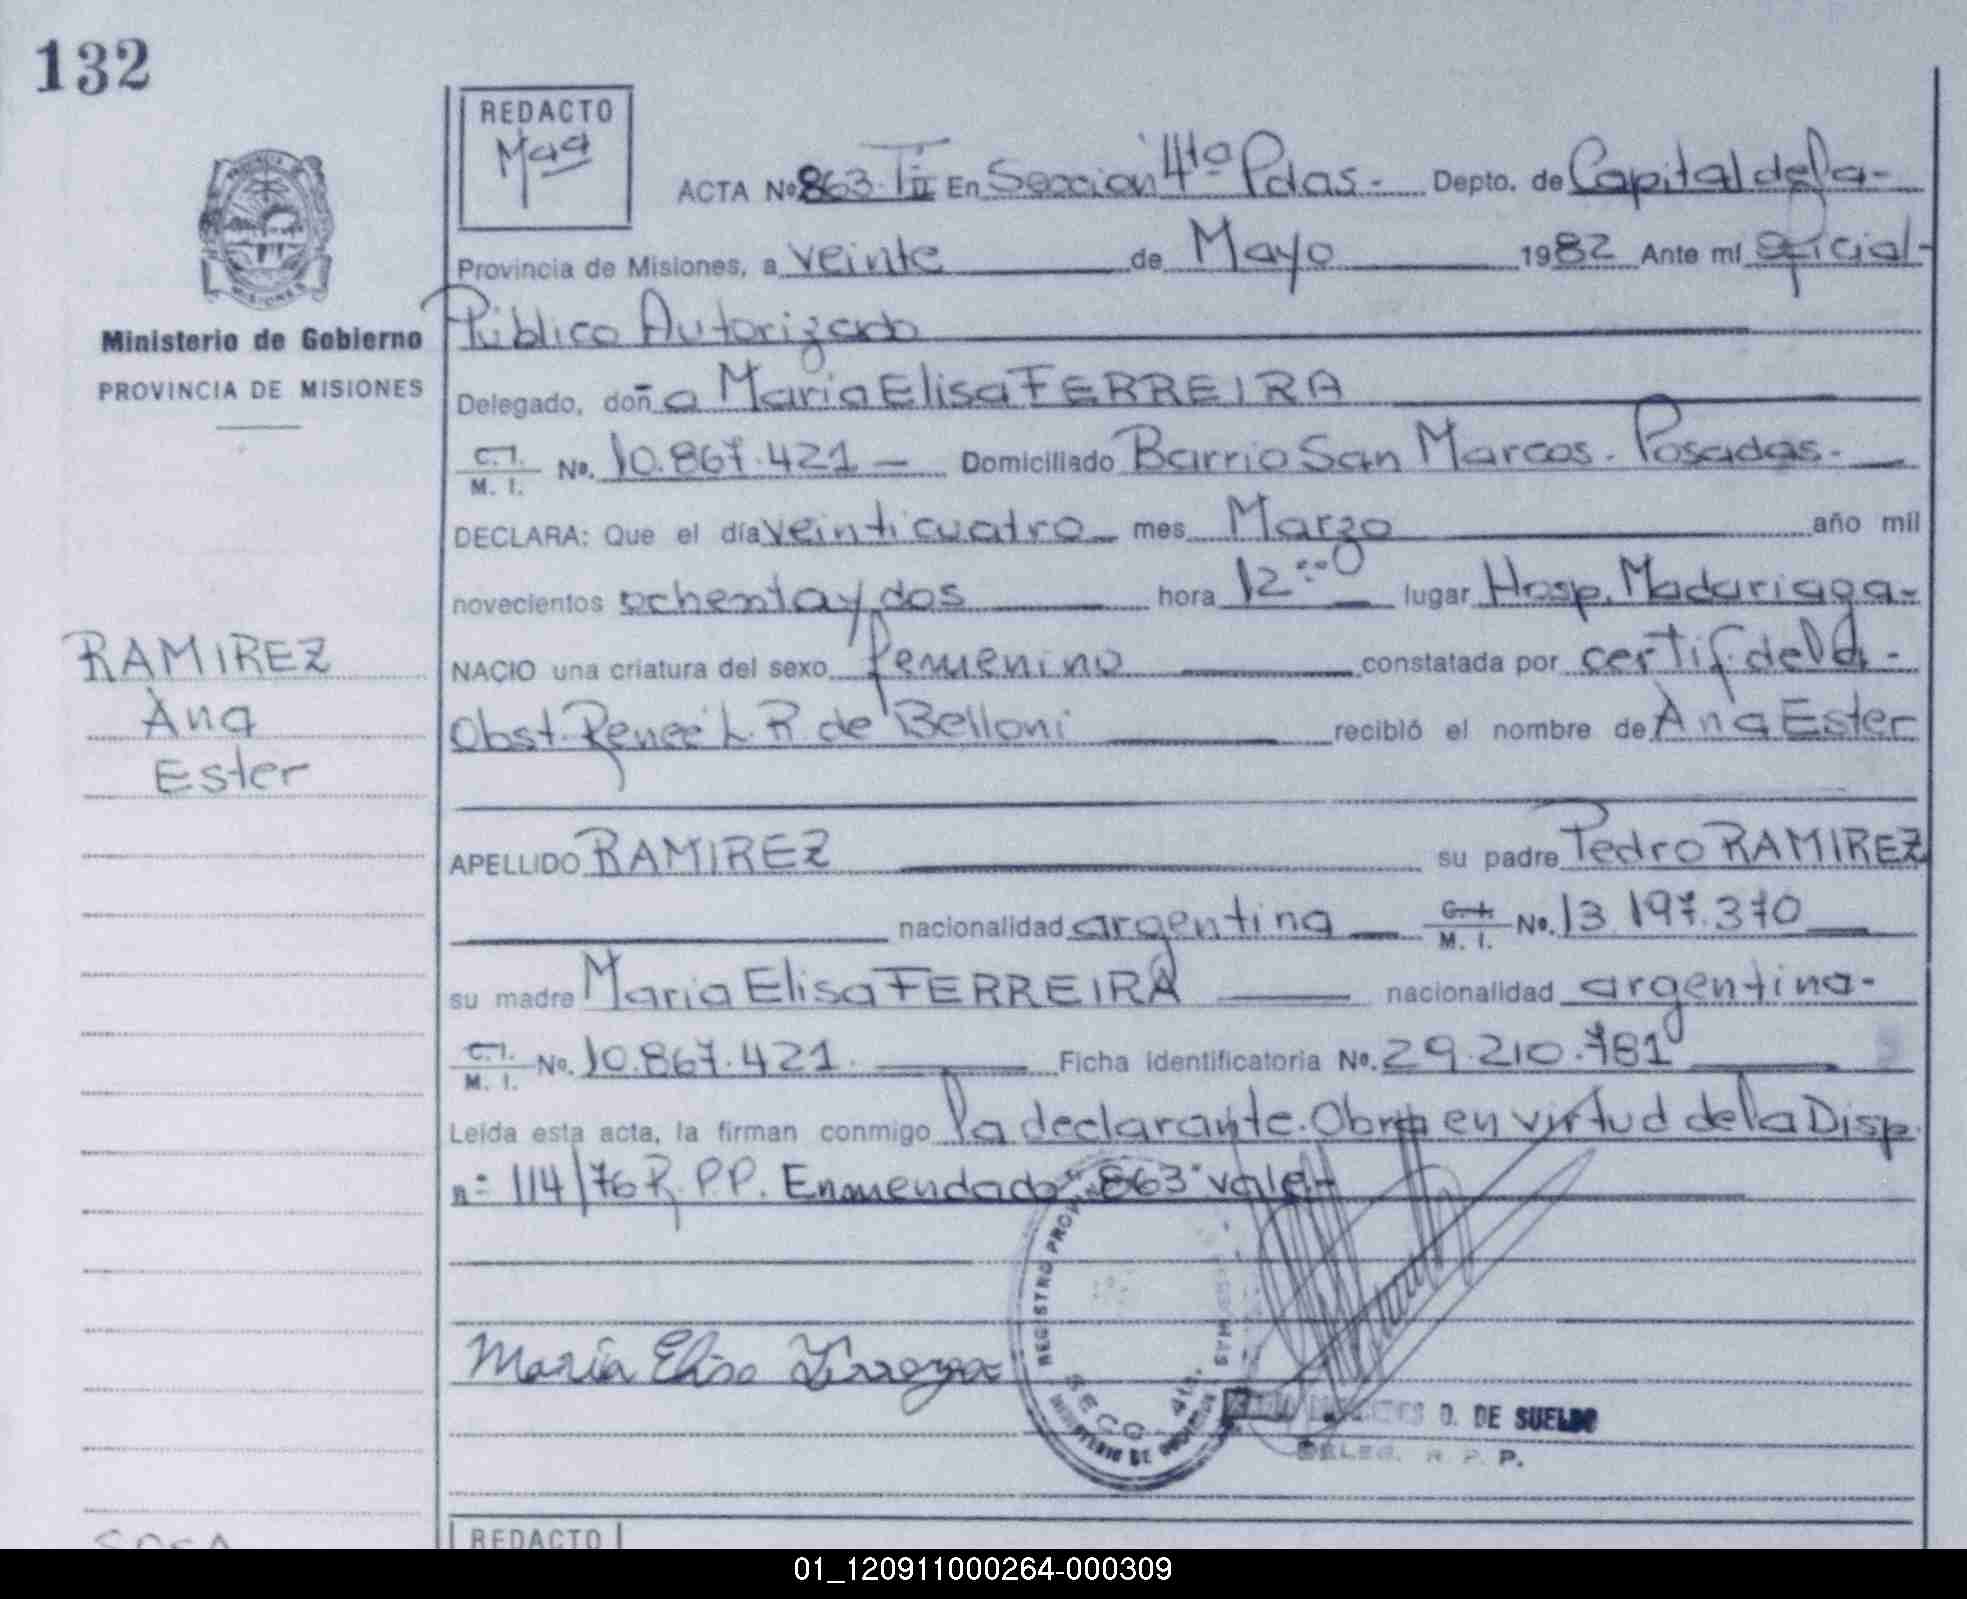 132
REDACTO
Maa
ACTA Nº 863-T II En Sección 4ta Pdas.- Depto. de Capital de la-
Provincia de Misiones, a veinte de Mayo 1982 Ante mí oficial-
Ministerio de Gobierno
PROVINCIA DE MISIONES
Público Autorizado
Delegado, doña María Elisa FERREIRA
C.I. M. I. No. 10.867.421 - Domiciliado Barrio San Marcos. Posadas.-
DECLARA: Que el día veinticuatro mes Marzo año mil
novecientos ochenta y dos hora 12:00 lugar Hosp. Madariaga-
NACIO una criatura del sexo femenino constatada por certif. de la-
Obst. Reneé L. R de Belloni recibió el nombre de Ana Ester
RAMIREZ
Ana
Ester
APELLIDO RAMIREZ su padre Pedro RAMIREZ
nacionalidad argentina C.I. M. I. No. 13 197.370
su madre María Elisa FERREIRA nacionalidad argentina-
C.I. M. I. No. 10.867.421. Ficha Identificatoria No. 29.210.781
Leída esta acta, la firman conmigo la declarante. Obra en virtud de la Disp.
nº 114/76 R.P.P. Enmendado "863" vale-
María Elisa
REGISTRO PROVINCIAL
SECC. 4ta.
MINISTERIO DE GOBIERNO
D. DE SUELDO
DELEG. R. P. P.
REDACTO
01_120911000264-000309